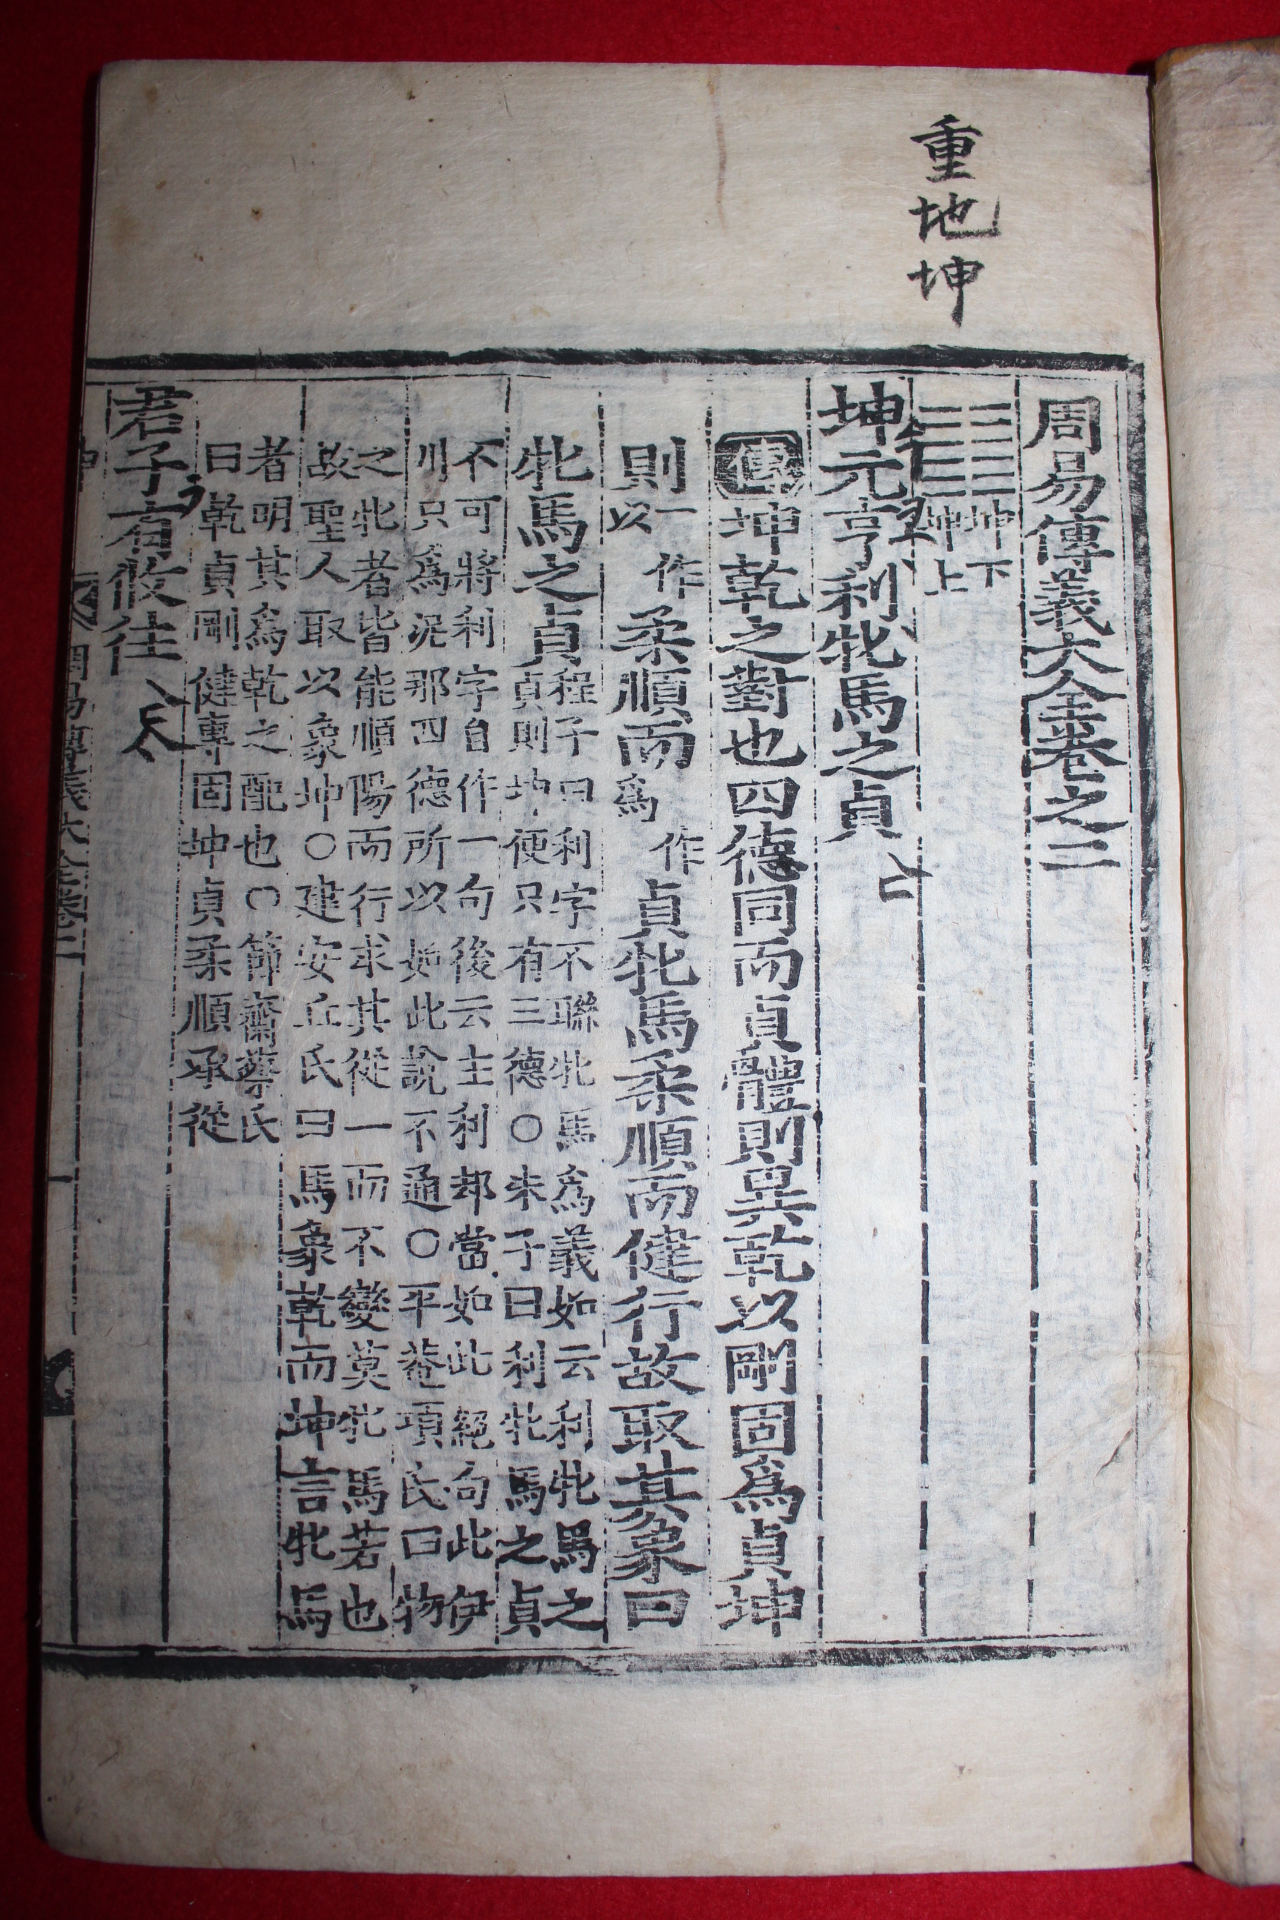 重地坤
周易傳義大全卷之二
坤下
坤上
坤元亨利牝馬之貞
傳坤乾之對也四德同而貞體則異乾以剛固為貞坤
則一作以柔順而一作為貞牝馬柔順而健行故取其象曰
牝馬之貞程子曰利字不聯牝馬為義如云利牝馬之
貞則坤便只有三德○朱子曰利牝馬之貞
不可將利字自作一句後云主利却當如此絕句此伊
川只為泥那四德所以如此說不通○平菴項氏曰物
之牝者皆能順陽而行求其從一而不變莫牝馬若也
故聖人取以象坤○建安丘氏曰馬象乾而坤言牝馬
者明其為乾之配也○節齋蔡氏
曰乾貞剛健專固坤貞柔順承從
君子有攸往
周易傳義大全卷二
一